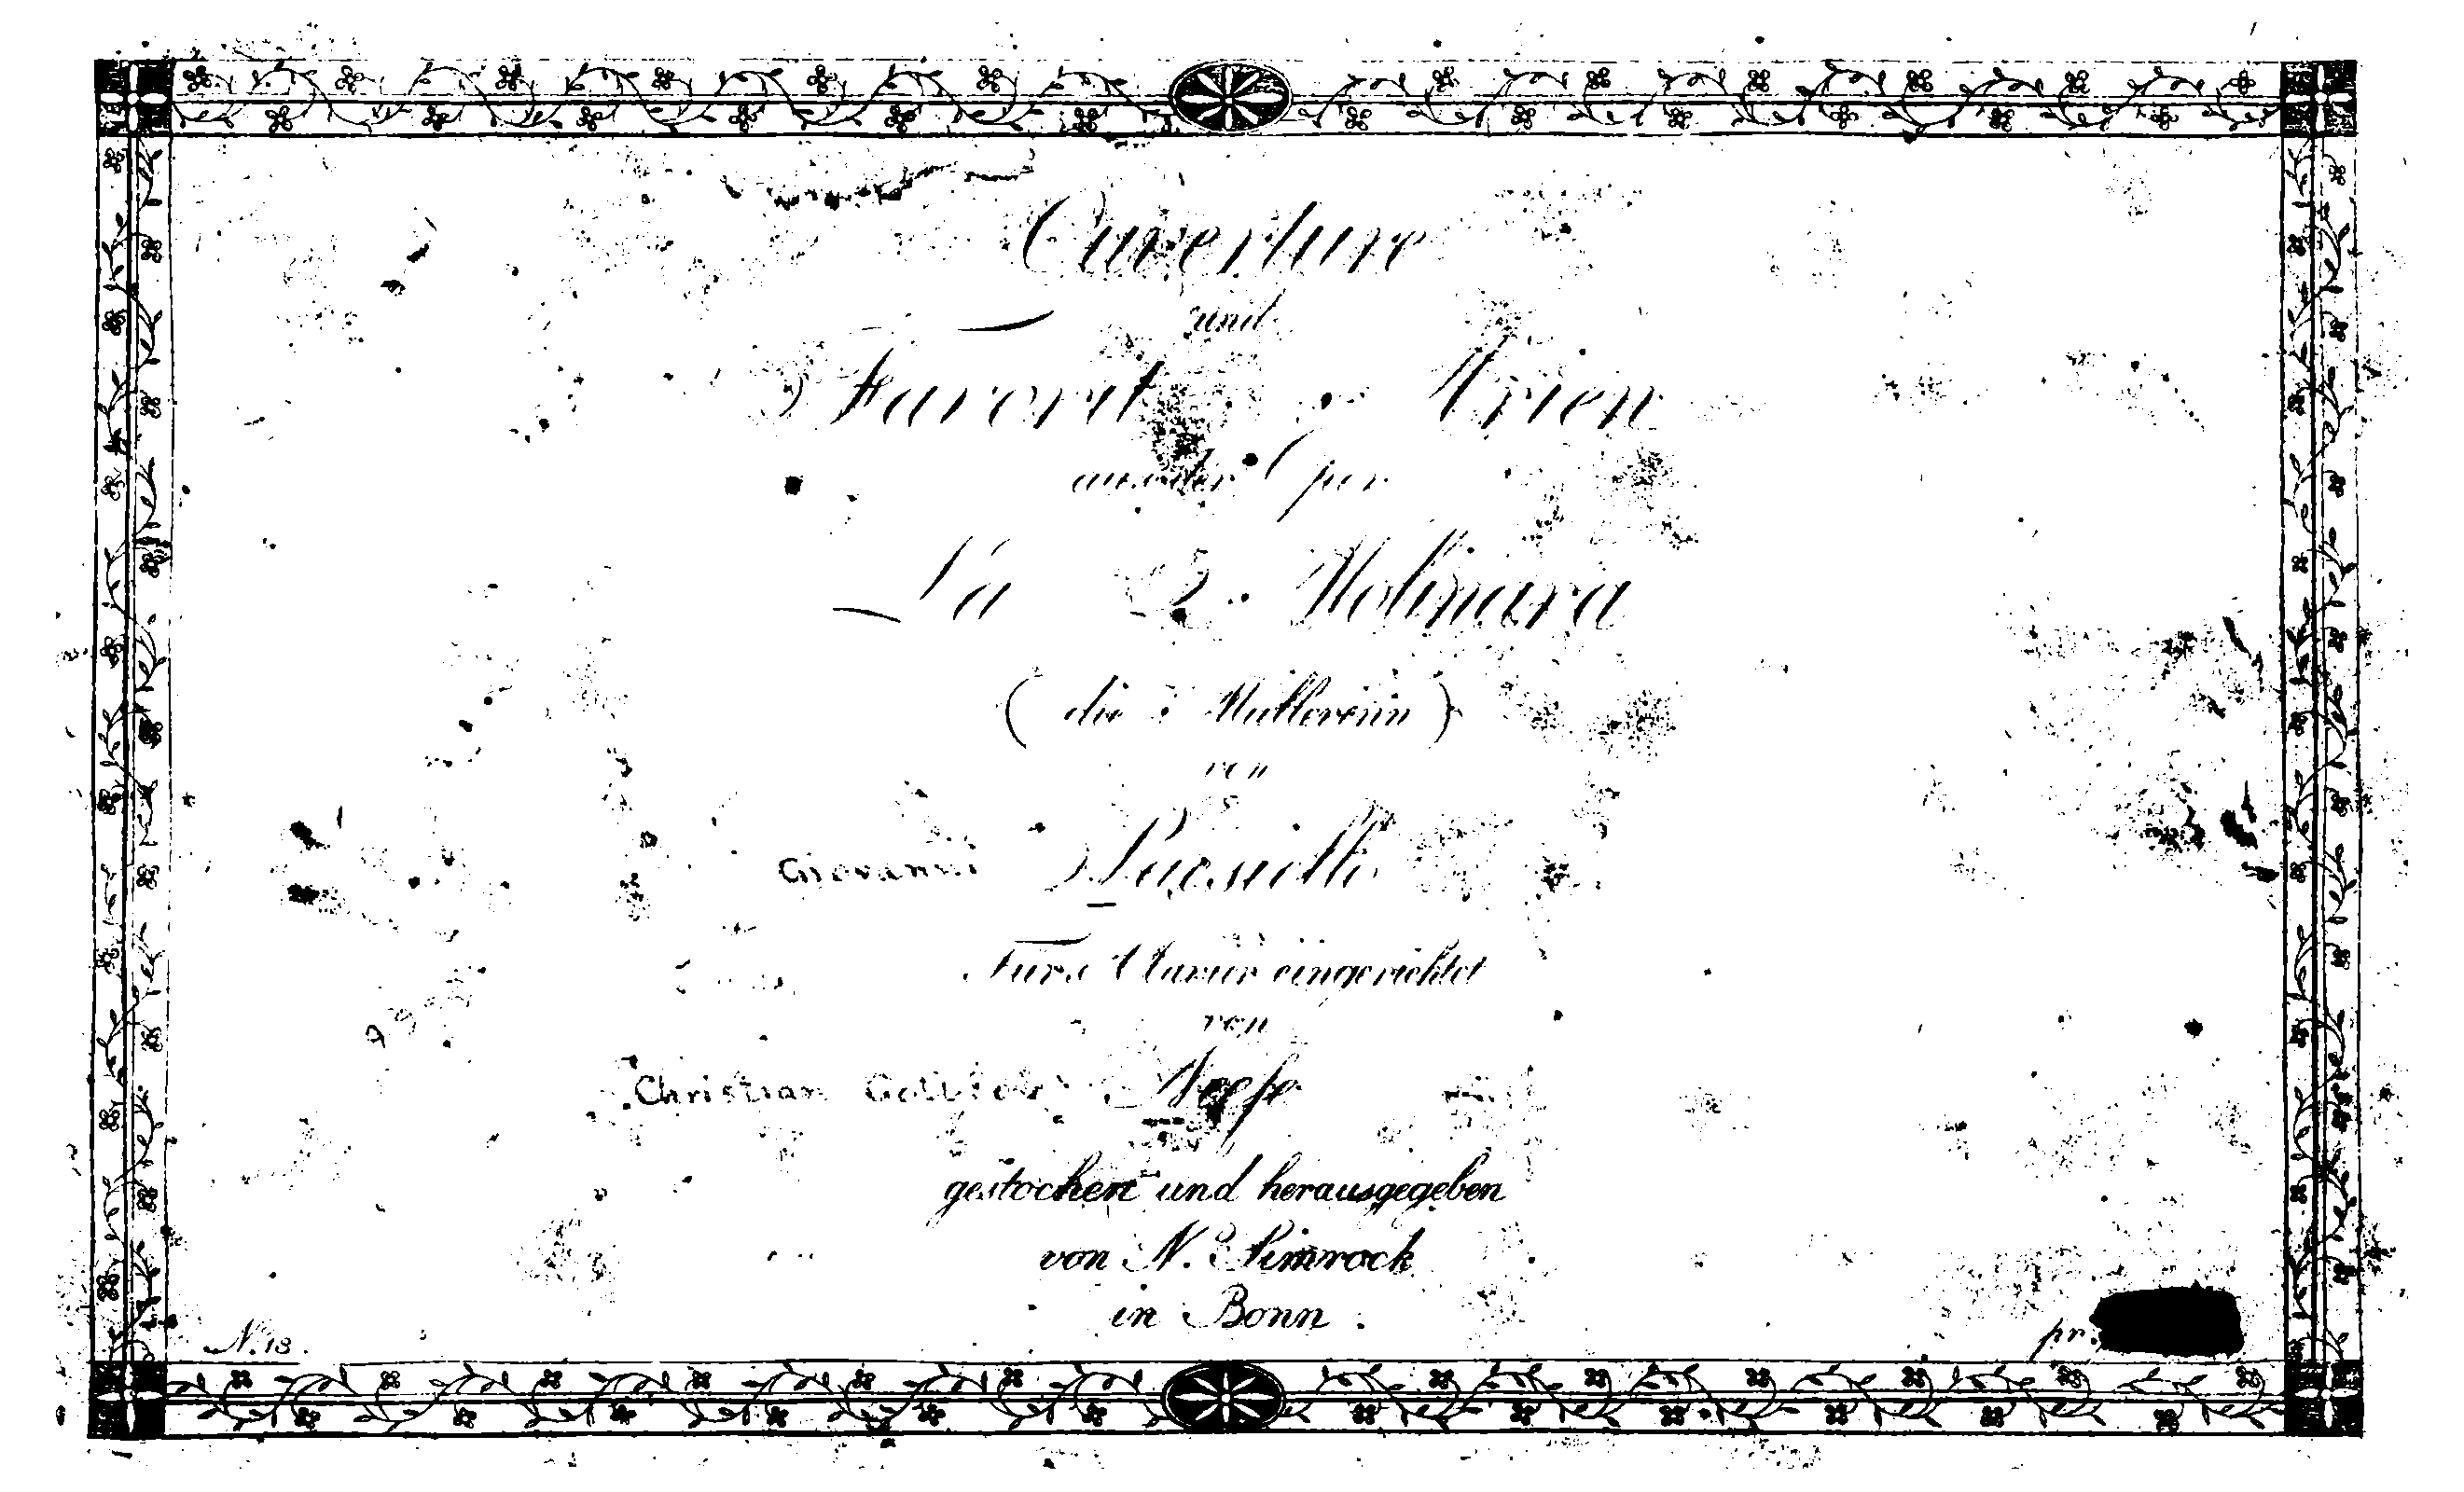 Ouverture
und
Favorit Arien
aus der Oper
La Molinara
( die Müllerinn )
von
Giovanni Paesiello
Fürs Clavier eingerichtet
von
Christian Gottlob Neefe
gestochen und herausgegeben
von N. Simrock
in Bonn.
N. 18.
pr.